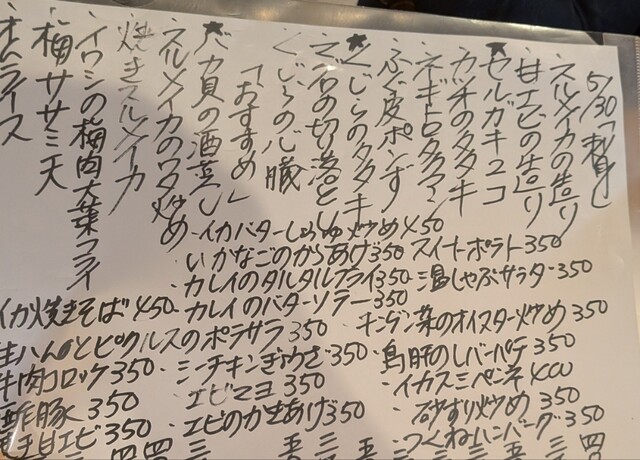 5/30「刺身」
・スルメイカの造り
・甘エビの造り
★セルガキユコ
・カツオのタタキ
・ネギトロタクアン
・ふぐ皮ポンず
★くじらのタタキ
・マグロの切り落とし
・くじらの心臓
「おすすめ」
★バカ貝の酒蒸し
・スルメイカのワタ炒め
焼きスルメイカ
・イワシの梅肉大葉フライ
・梅ササミ天
・オムライス
・イカバターしょうゆ炒め 450
・いかなごのからあげ 350
・スイートポテト 350
・カレイのタルタルフライ 350
・温しゃぶサラダ 350
イカ焼きそば 450
・カレイのバターソテー 350
生ハムとピクルスのポテサラ 350
・チンゲン菜のオイスター炒め 350
牛肉コロッケ 350
・シーチキンぎょうざ 350
・鳥肝のレバーパテ 350
酢豚 350
・エビマヨ 350
・イカスミペンネ 400
甘エビ 350
・エビのかきあげ 350
・砂ずり炒め 350
・つくねハンバーグ 350